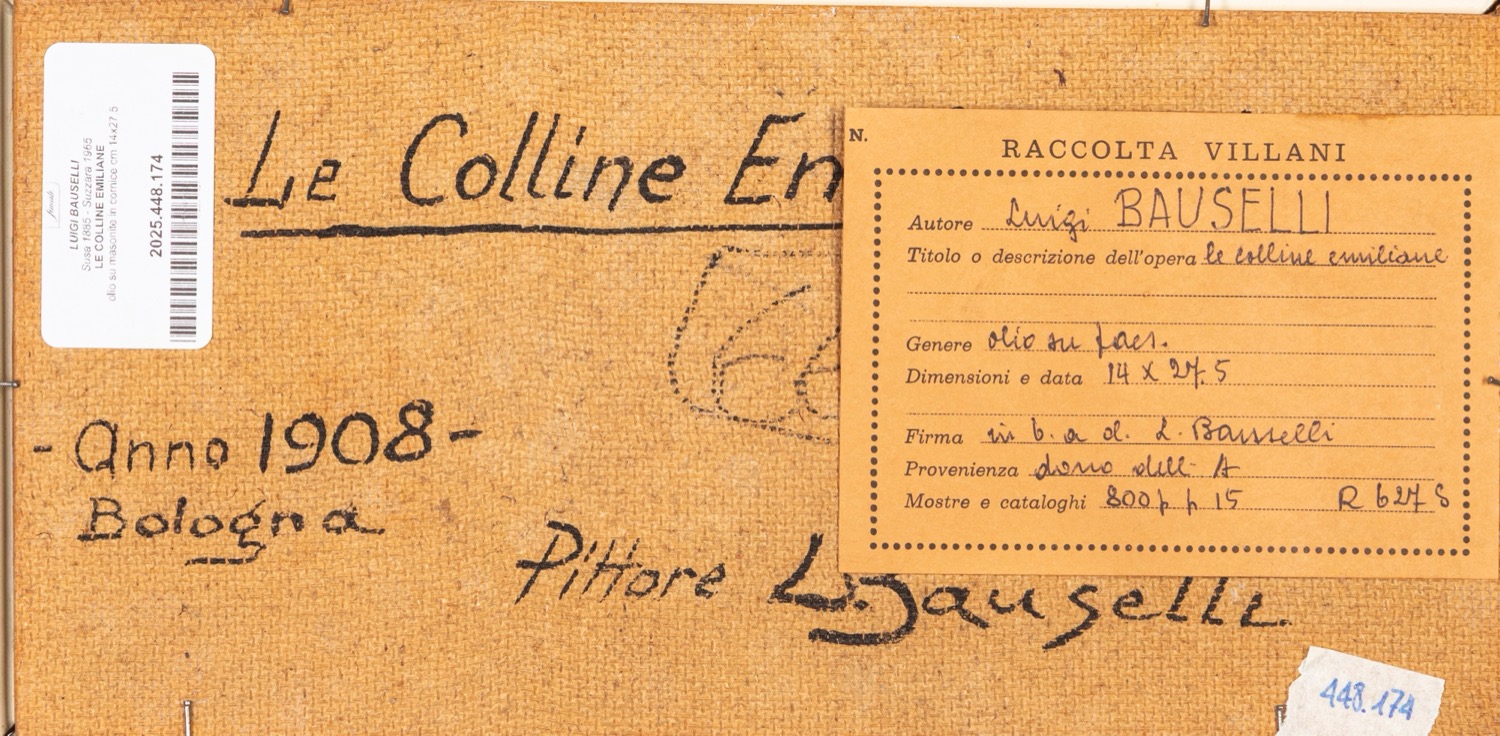 LUIGI BAUSELLI
Susa 1885 - Suzzara 1965
LE COLLINE EMILIANE
olio su masonite in cornice cm 14x27.5
2025.448.174
Le Colline Em
- Anno 1908 -
Bologna
Pittore L. Bauselli
N.
RACCOLTA VILLANI
Autore Luigi BAUSELLI
Titolo o descrizione dell'opera le colline emiliane
Genere olio su faes.
Dimensioni e data 14 x 27.5
Firma in b. a d. L. Bauselli
Provenienza dono dell' A
Mostre e cataloghi 800 p p 15 R 627 S
448.174